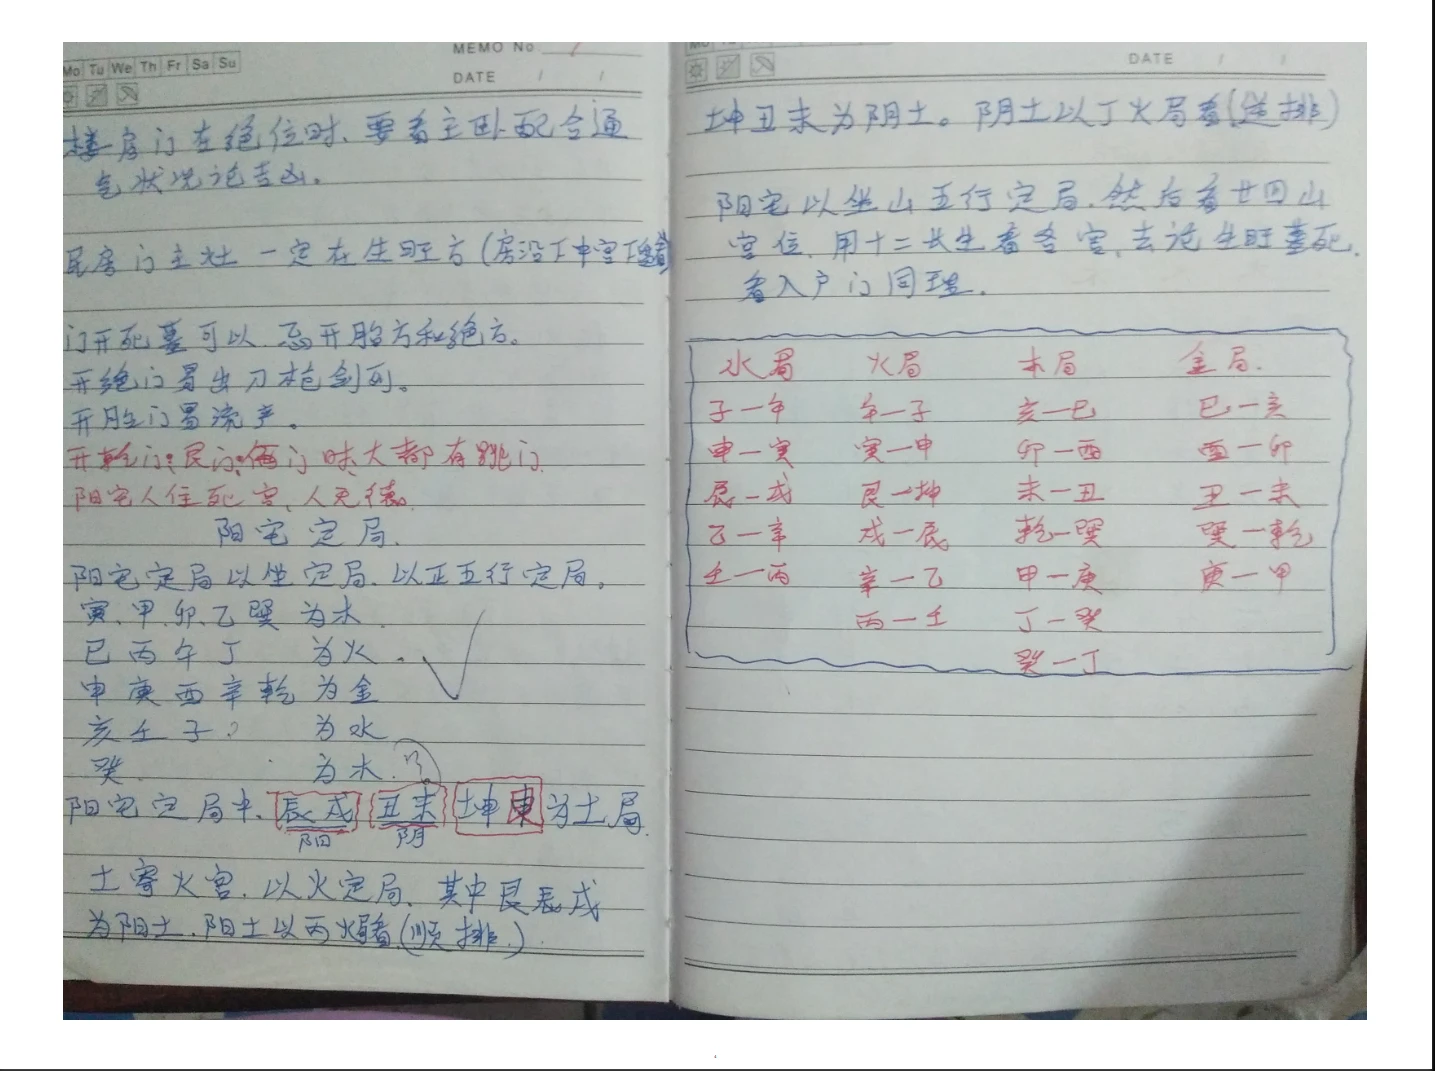 MEMO No
Mo Tu We Th Fr Sa Su
DATE / /
楼房门在绝位时、要看主卧配合通
气状况论吉凶.
民房门主灶一定在生旺方(房没下中宫下
门开死墓可以.忌开胎方和绝方。
开绝门易出刀枪剑
开胎门易流产。
开乾门:艮门:俩门时、大都有跳门.
阳宅人住死宫、人无德.
阳宅定局.
阳宅定局以坐定局.以正五行定局。
寅.甲.卯.乙巽 为木.
巳丙午丁 为火.
申庚酉辛乾为金
亥壬子? 为水
癸. 为木.?
阳宅定局中、辰戌 丑未 坤 为土局.
阳 阴
土寄火宫.以火定局.其中艮辰戌
为阳土.阳土以丙火局看(顺排.)
DATE / /
坤丑未为阴土。阴土以丁火局看(逆排)
阳宅以坐山五行定局.然后看廿四山
宫位.用十二长生看各宫.去论生旺墓死.
看入户门同理.
水局 火局 木局 金局.
子一午 午一子 亥一巳 巳一亥
申一寅 寅一申 卯一酉 酉一卯
辰一戌 艮一坤 未一丑 丑一未
乙一辛 戌一辰 乾一巽 巽一乾
壬一丙 辛一乙 甲一庚 庚一甲
丙一壬 丁一癸
癸一丁